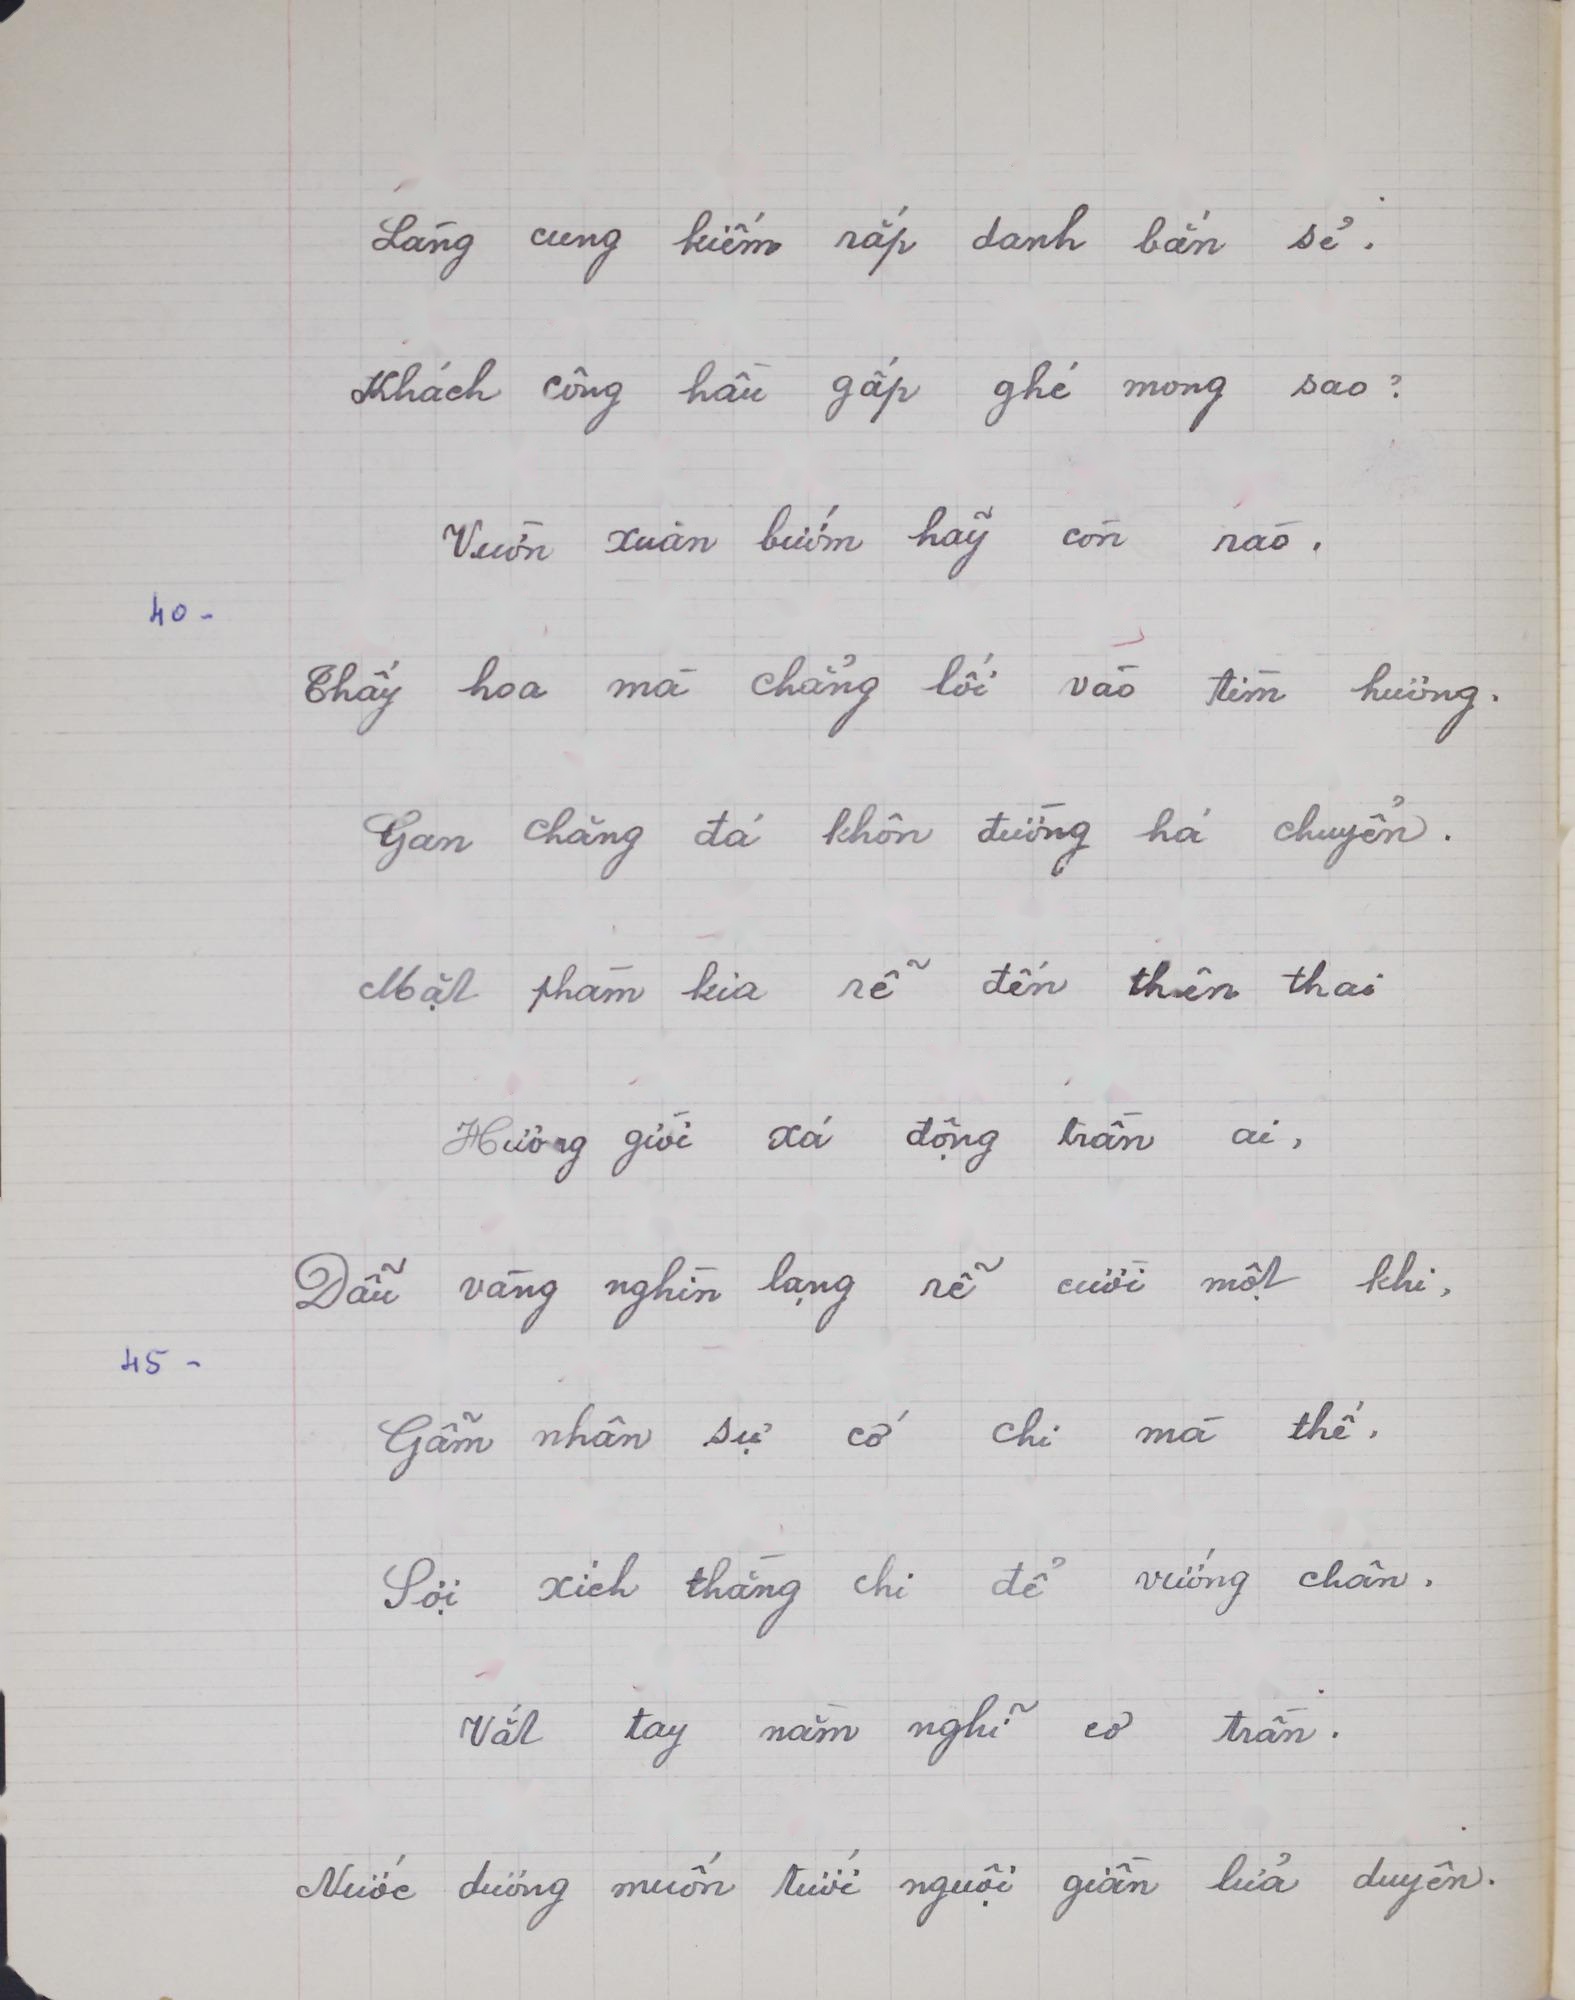 Làng cung kiếm rắp danh bắn sẻ.
Khách công hầu gấp ghé mong sao?
Vườn xuân bướm hãy còn rào.
40-
Thấy hoa mà chẳng lối vào tìm hương.
Gan chăng đá khôn đường há chuyển.
Mặt phàm kia rễ đến thiên thai
Hương giời xá động trần ai,
Dẫu vàng nghìn lạng rễ cười một khi,
45-
Gẫm nhân sự cớ chi mà thế.
Sợi xích thằng chi để vướng chân.
Vắt tay nằm nghĩ cơ trần.
Nước dương muốn tưới nguội giần lửa duyên.